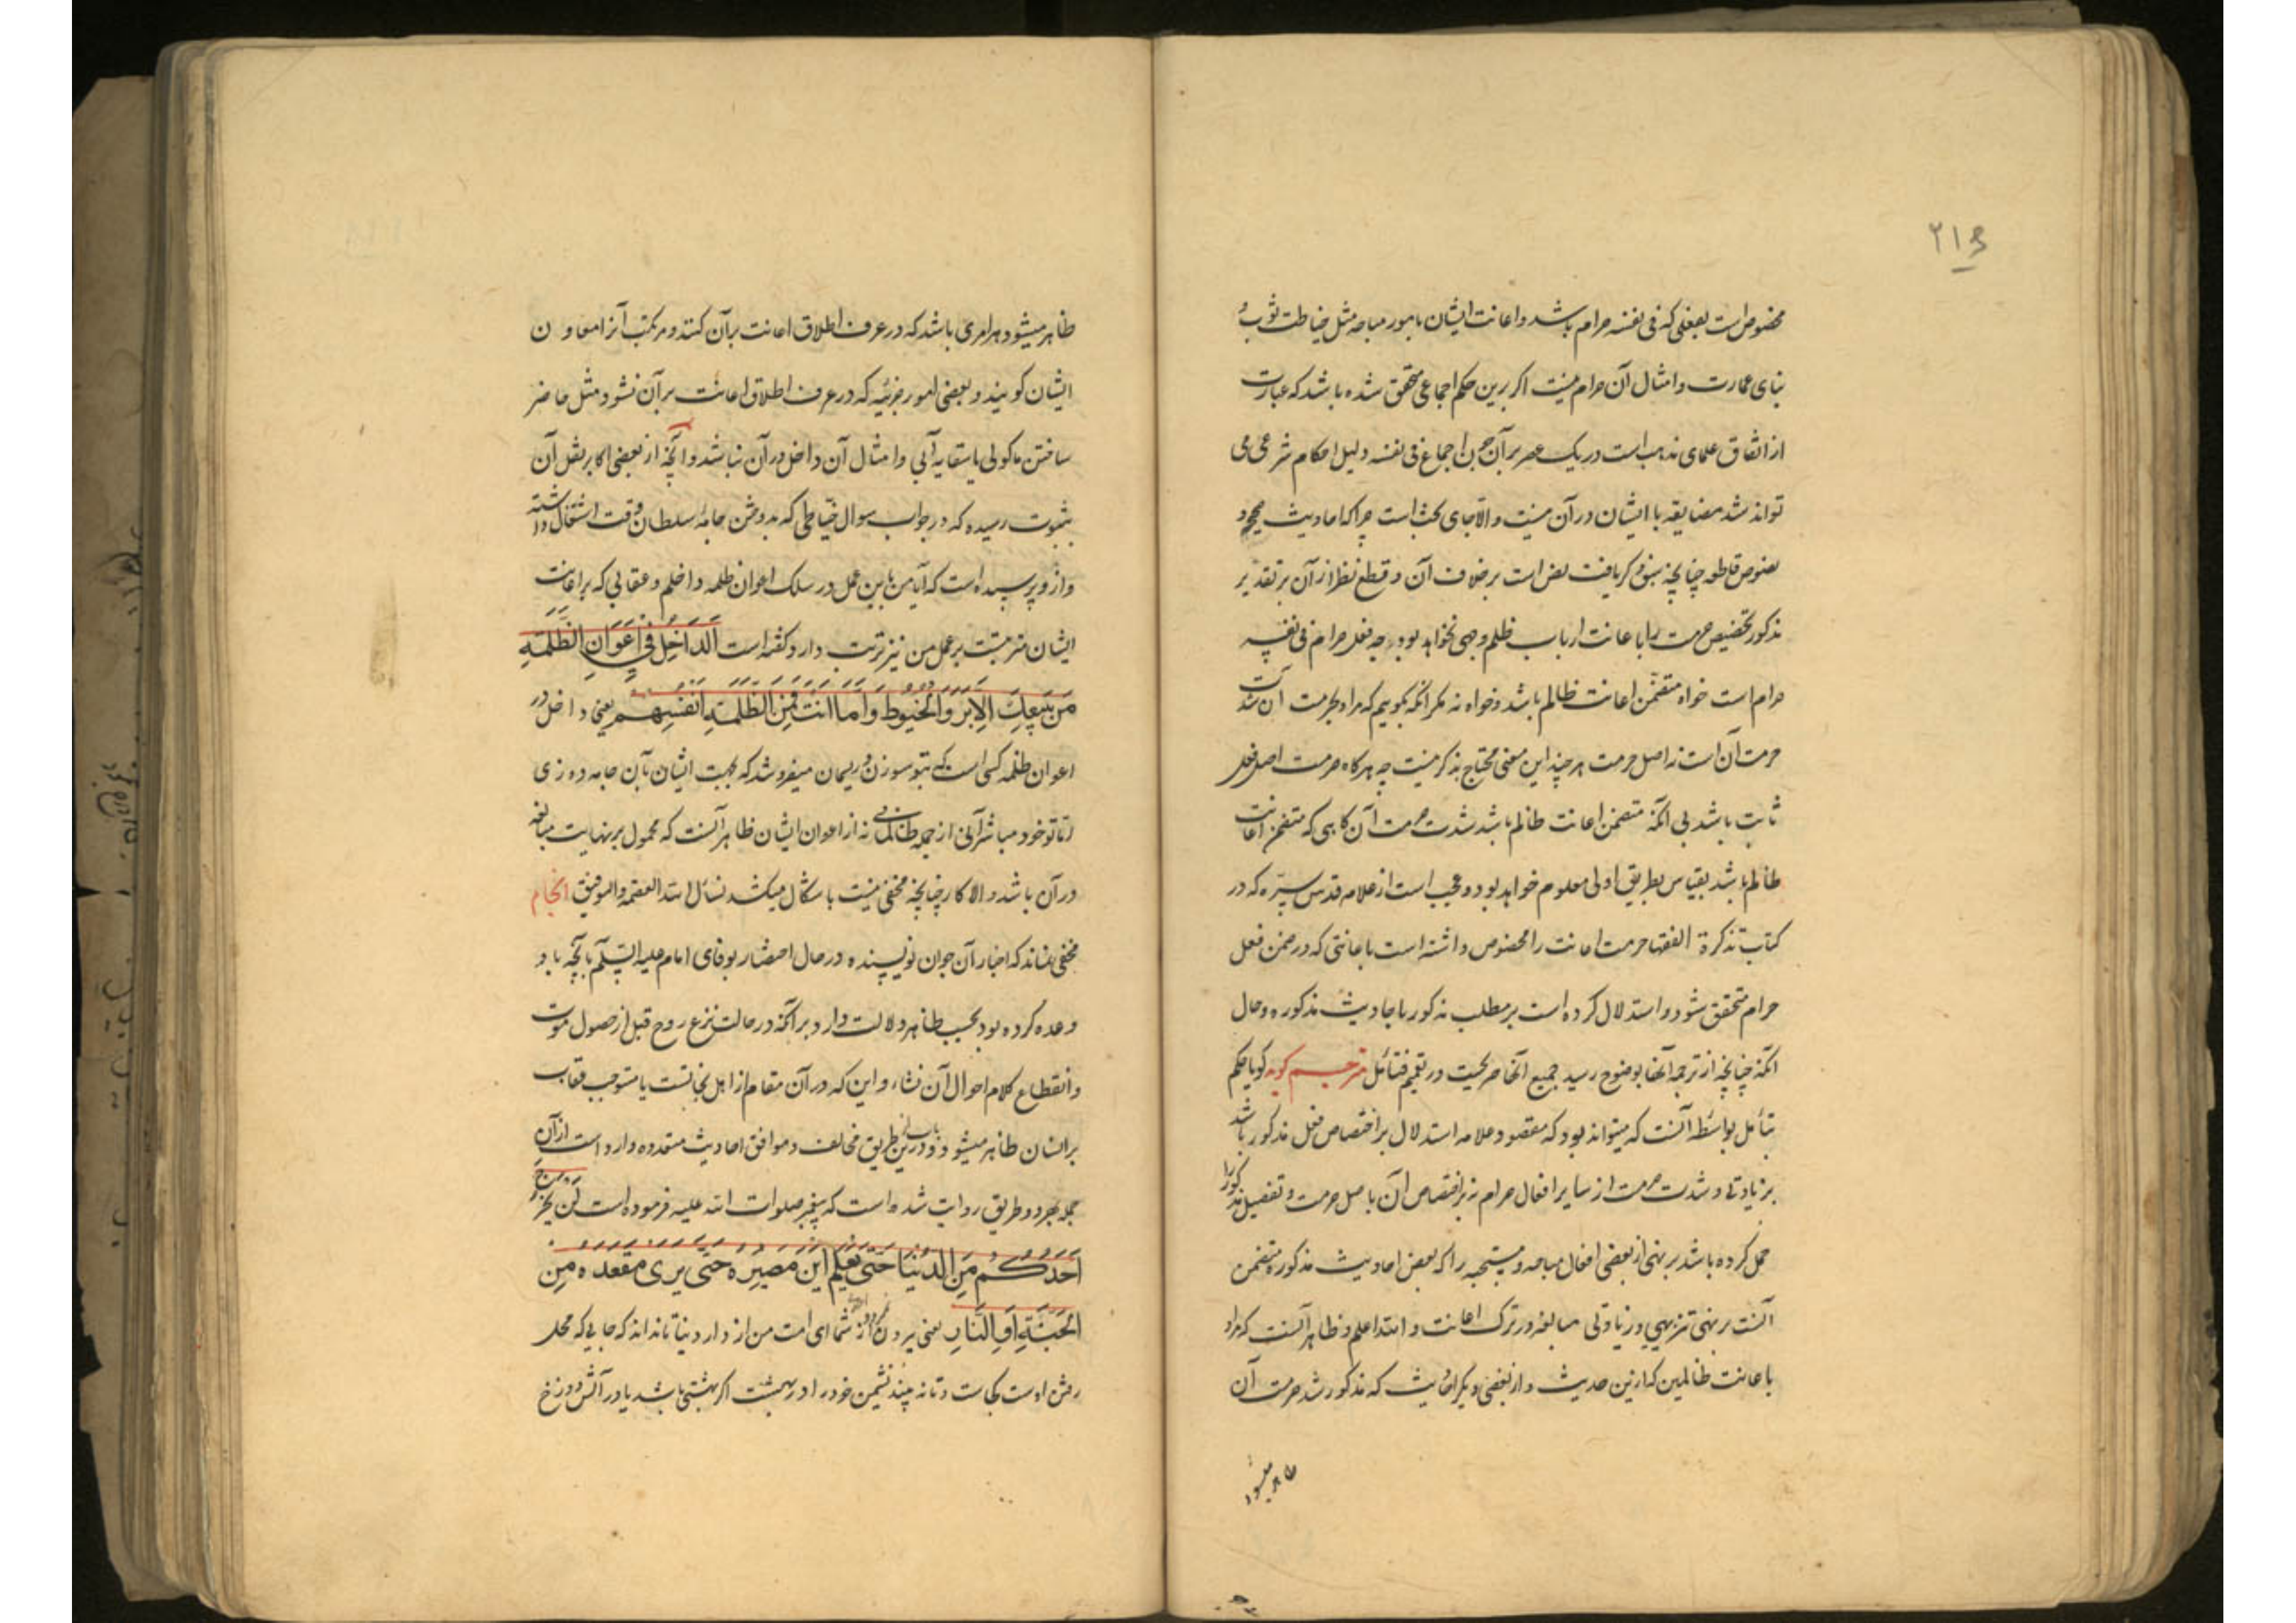 ۲۱۶
مخصوص است بفعلی که فی نفسه حرام باشد و اعانت ایشان بامور مباحه مثل خیاطت ثوب و
بنای عمارت و امثال آن حرام نیست اگر برین حکم اجماعی محقق شده باشد که عبارت
از اتفاق علمای مذهب است در یک عصر بر آن چون اجماع فی نفسه دلیل احکام شرعی می
تواند شد مضایقه با ایشان در آن نیست و الا جای بحث است چرا که احادیث صحیحه و
نصوص قاطعه چنانچه سبق ذکر یافت نص است بر خلاف آن و قطع نظر از آن بر تقدیر
مذکور تخصیص حرمت را باعانت ارباب ظلم وجهی نخواهد بود چه فعل حرام فی نفسه
حرام است خواه متضمن اعانت ظالم باشد و خواه نه مگر آنکه بگوییم که مراد بحرمت آن شدت
حرمت آن است نه اصل حرمت هر چند این معنی محتاج بذکر نیست چه هرگاه حرمت اصل فعل
ثابت باشد بی آنکه متضمن اعانت ظالم باشد شدت حرمت آن گاهی که متضمن اعانت
ظالم باشد بقیاس بطریق اولی معلوم خواهد بود و عجب است از علامه قدس سره که در
کتاب تذکرة الفقها حرمت اعانت را مخصوص داشته است باعانتی که در ضمن فعل
حرام متحقق شود و استدلال کرده است بر مطلب مذکور باحادیث مذکوره و حال
آنکه چنانچه از ترجمه آنها بوضوح رسید جمیع آنها صریحیت در تعمیم فتأمل مترجم گوید گویا حکم
بتأمل بواسطه آنست که میتواند بود که مقصود علامه استدلال بر اختصاص فعل مذکور باشد
بزیادتی و شدت حرمت از سایر افعال حرام نه بر اختصاص آن باصل حرمت و تفصیل مذکور را
حمل کرده باشد بر نهی از بعضی افعال مباحه و مستحبه را که بعض احادیث مذکوره متضمن
آنست بر نهی تنزیهی و زیادتی مبالغه در ترک اعانت و الله اعلم و ظاهر آنست که مراد
باعانت ظالمین که ازین حدیث و از بعضی دیگر احادیث که مذکور شد حرمت آن
ظاهر میشود
ظاهر میشود هر امری باشد که در عرف اطلاق اعانت بر آن کنند و مرتکب آنرا معاون
ایشان گویند و بعضی امور جزئیه که در عرف اطلاق اعانت بر آن نشود مثل حاضر
ساختن ماکولی یا سقایه آبی و امثال آن داخل در آن نباشد و آنچه از بعضی اکابر نقل آن
بثبوت رسیده که در جواب سوال خیاطی که بدوختن جامۀ سلطان وقت اشتغال داشته
و ازو پرسیده است که آیا من باین عمل در سلک اعوان ظلمه داخلم و عقابی که بر اعانت
ایشان مترتبست بر عمل من نیز ترتب دارد گفته است اَلدَاخِلُ فی اَعوَانِ الظَلَمَةِ
مَن یَبیعُکَ الاِبَرَ وَالخُیُوطَ وَاَمَا اَنتَ فَمِنَ الظَلَمَةِ اَنفُسِهِم یعنی داخل در
اعوان ظلمه کسی است که بتو سوزن و ریسمان میفروشد که بجهت ایشان بآن جامه دوزی
اما تو خود مباشر آنی از جمله ظالمانی نه از اعوان ایشان ظاهر آنست که محمول بر نهایت مبالغه
در آن باشد و الا کار چنانچه مخفی نیست باشکال میکشد نسأل الله العصمة والتوفیق انجام
مخفی نماند که اخبار آن جوان نویسنده در حال احتضار بوفای امام علیه السلام بآنچه باو
وعده کرده بود بحسب ظاهر دلالت دارد بر آنکه در حالت نزع روح قبل از حصول موت
و انقطاع کلام احوال آن نشاء و این که در آن مقام از اهل نجاتست یا مستوجب عقاب
بر انسان ظاهر میشود و درین باب از طریق مخالف و موافق احادیث متعدده وارد است از آن
جمله بهر دو طریق روایت شده است که پیغمبر صلوات الله علیه فرموده است لَن یَخرُجَ
اَحَدُکُم مِنَ الدُنیَا حَتّی یَعلَمَ اَینَ مَصیرُه حَتّی یَرٰی مَقعَدَه مِنَ
الجَنَّةِ اَوِ النَّارِ یعنی بیرون نمیرود احدی از شما ای امت من از دار دنیا تا نداند که جایی که محل
رفتن اوست کجاست و تا نه بیند نشیمن خود را در بهشت اگر بهشتی باشد یا در آتش دوزخ